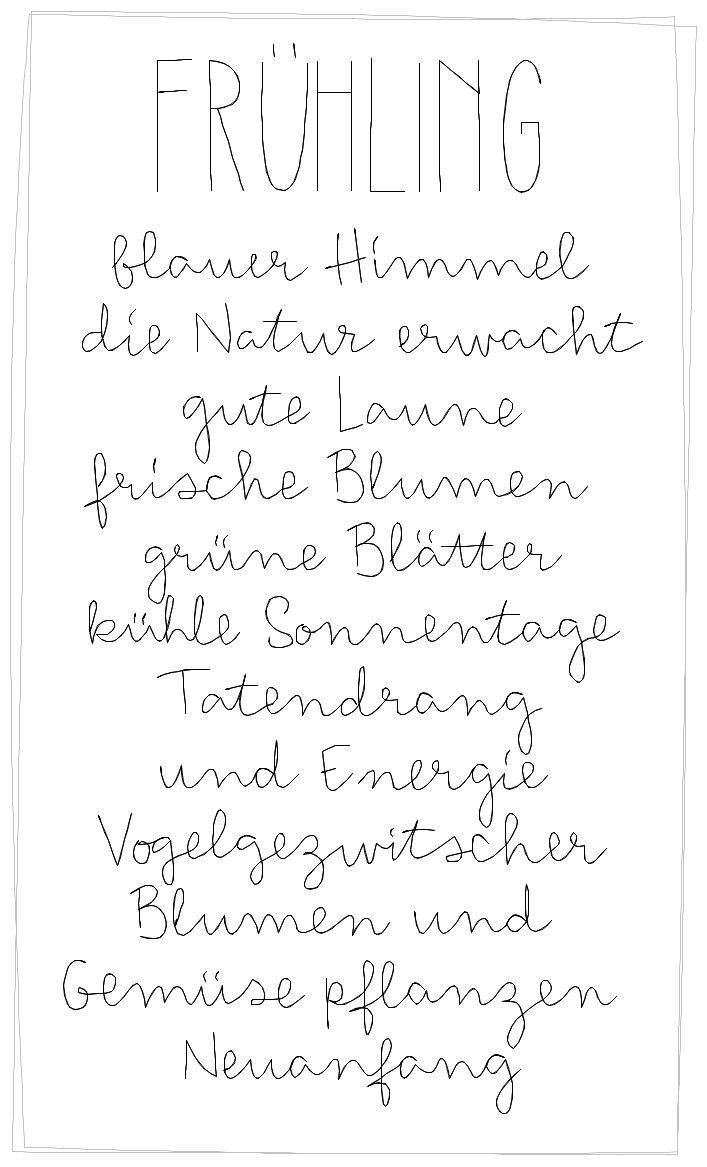 FRÜHLING
blauer Himmel
die Natur erwacht
gute Laune
frische Blumen
grüne Blätter
kühle Sonnentage
Tatendrang
und Energie
Vogelgezwitscher
Blumen und
Gemüse pflanzen
Neuanfang